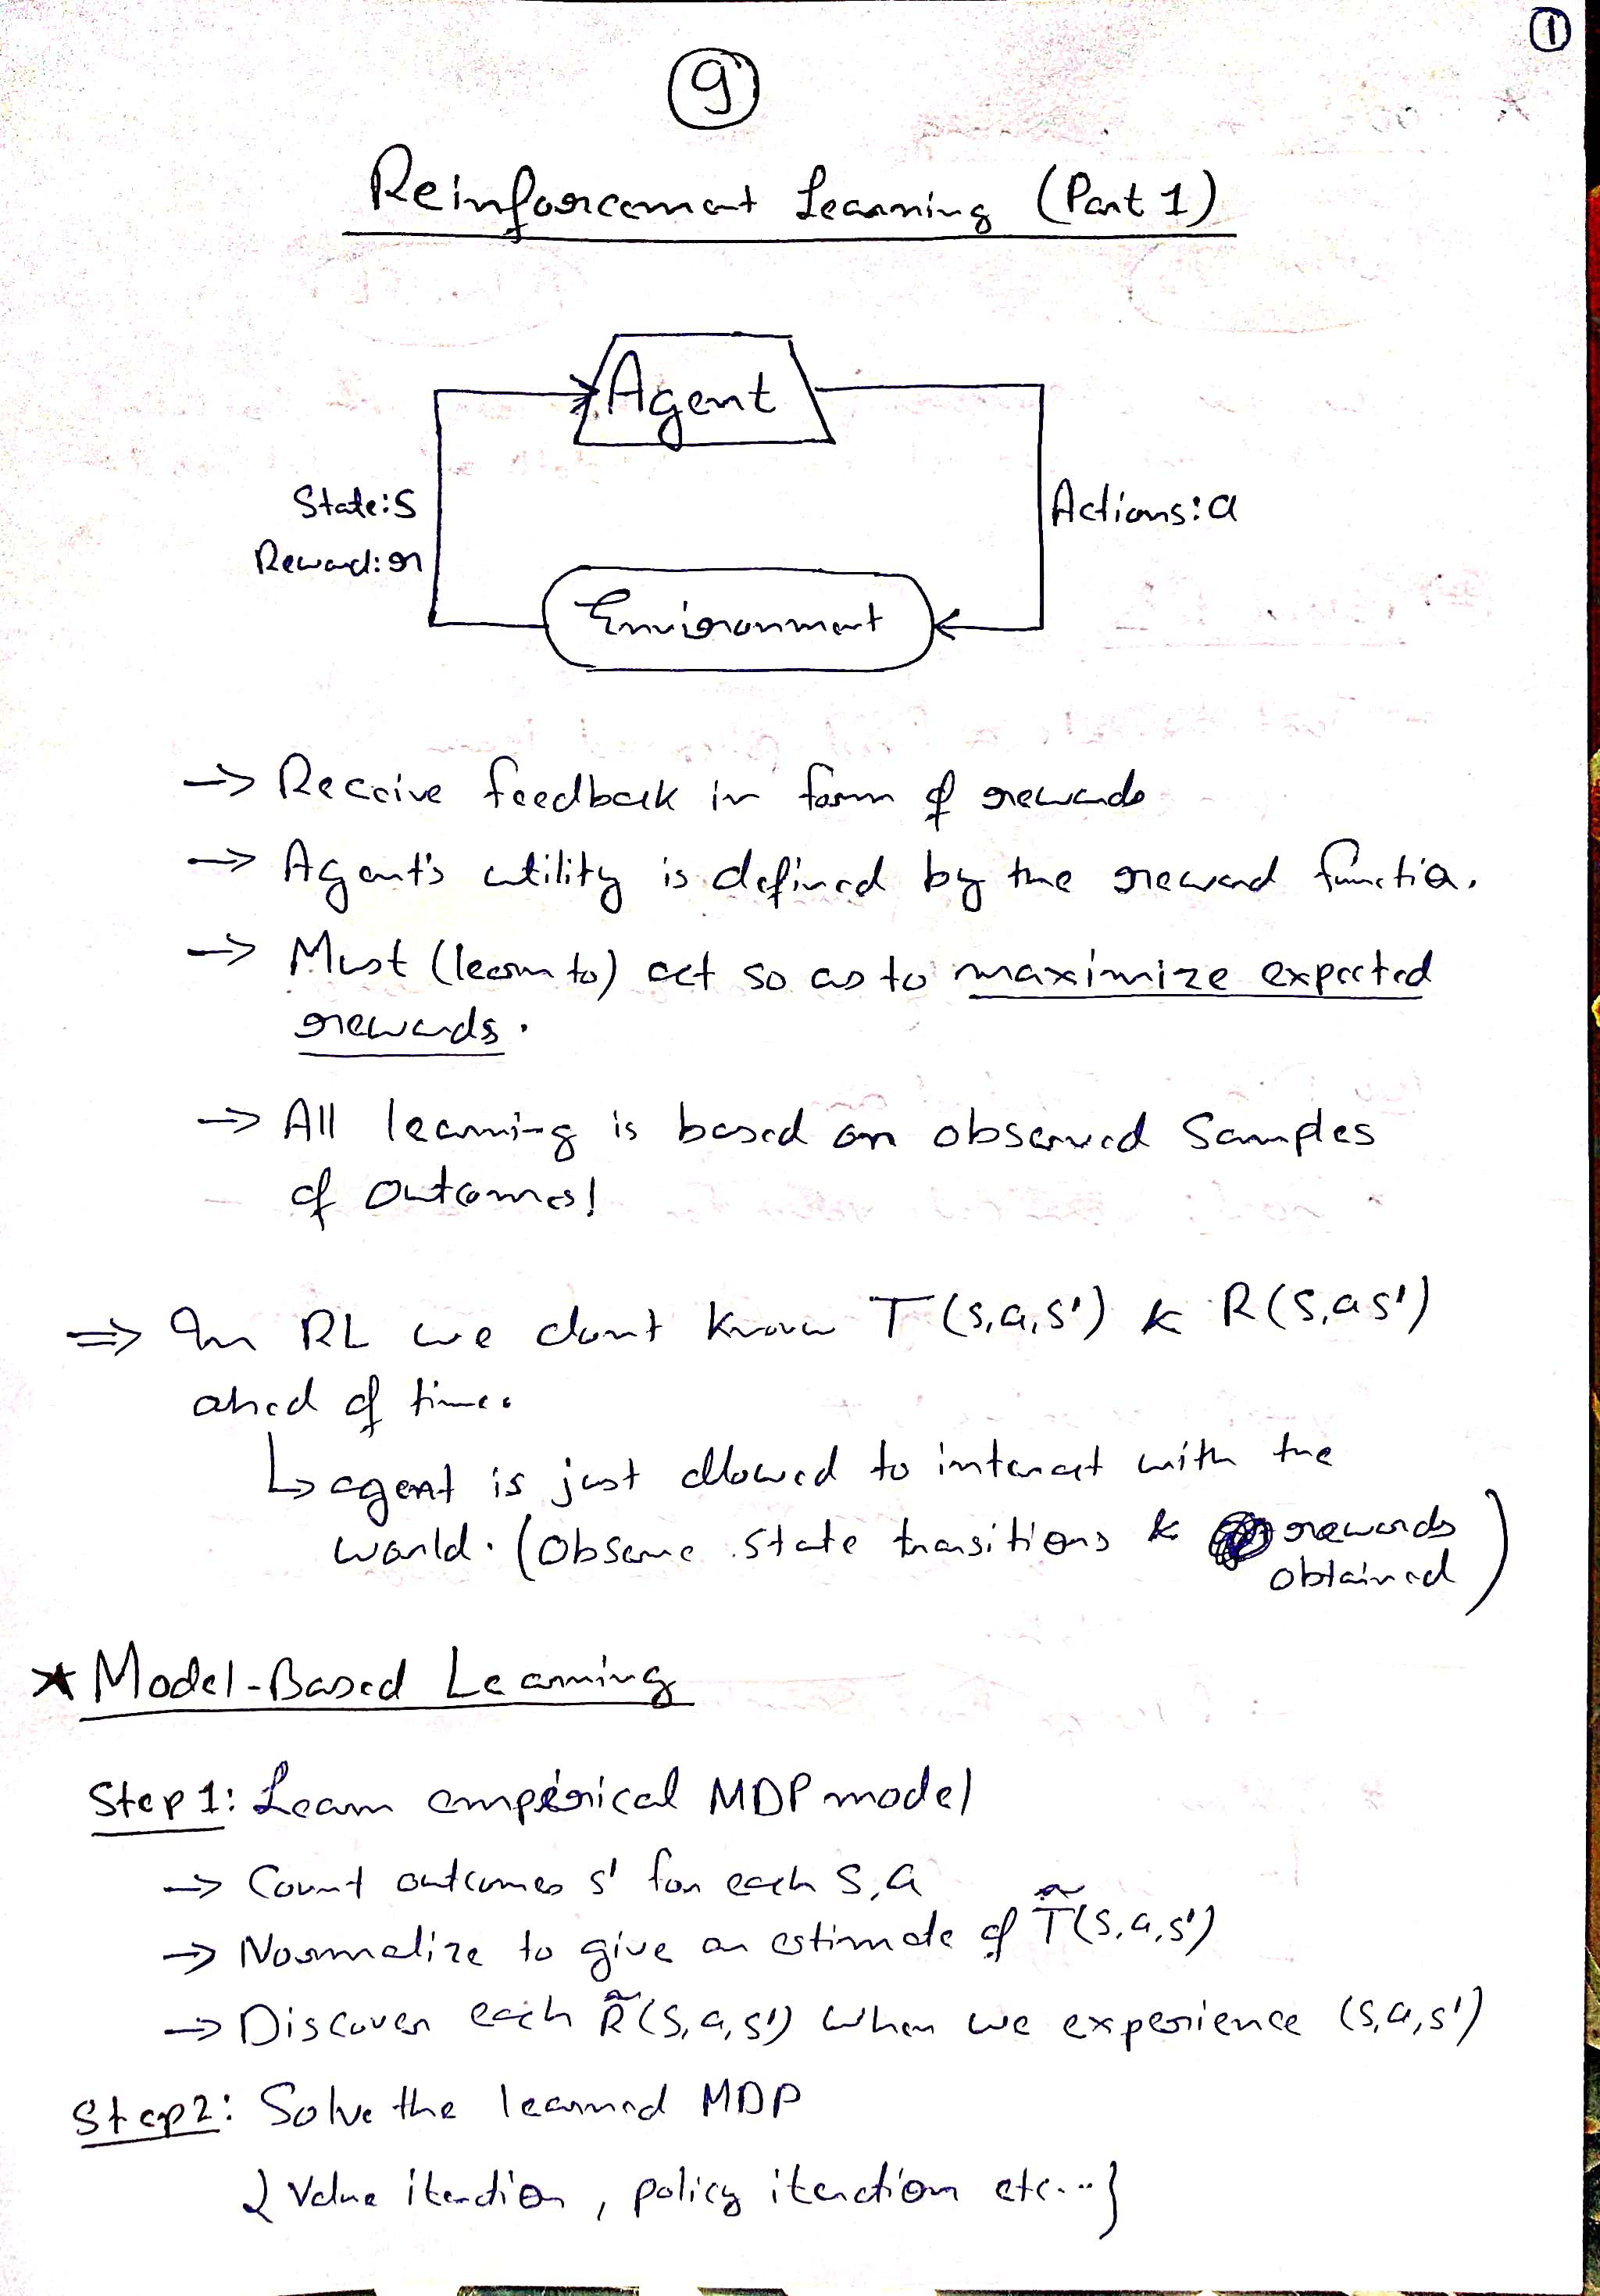 1
9
Reinforcement Learning (Part 1)
Agent
State: s
Actions: a
Reward: r
Environment
→ Receive feedback in form of rewards
→ Agent's utility is defined by the reward function.
→ Must (learn to) act so as to maximize expected
rewards.
→ All learning is based on observed samples
of outcomes!
⇒ In RL we dont know T(s,a,s') & R(s,a s')
ahed of time.
↳ agent is just allowed to interact with the
world. (Observe state transitions & rewards
obtained)
★ Model-Based Learning
Step 1: Learn emperical MDP model
→ Count outcomes s' for each s,a
→ Normalize to give an estimate of T̃(s,a,s')
→ Discover each R̃(s,a,s') when we experience (s,a,s')
Step 2: Solve the learned MDP
{ Value iteration, policy iteration etc...}